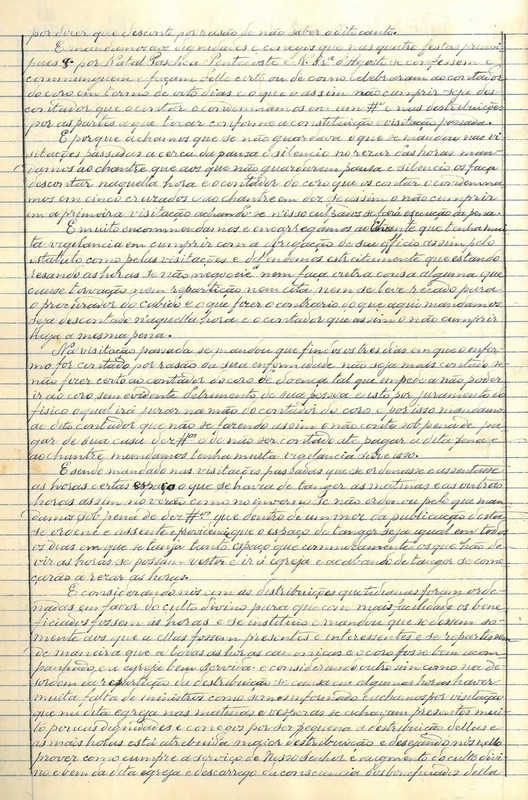 por dizer que desconte por rasão de não saber o dito canto.
E mandamos aos dignidades e conegos que nas quatro festas princi-
paes q. por Natal Paschoa Pentecoste e N. Sra d'Agosto se confessem e
communguem e façam dello certo ou de como celebraram ao contador
do coro em termo de oito dias e o que o assim não cumprir seja des-
contado e que o contar o condemnamos em um #o e nas destribuições
por as partes a que tocar conforme a constituição e visitação passada.
E porque achamos que se não guardava o que se mandou nas vi-
sitações passadas acerca da pausa e silencio no rezar das horas man-
damos ao chantre que aos que não guardarem pausa e silencio os faça
descontar naquella hora e o contador do coro que os contar o condemna-
mos em cinco cruzados e ao chantre em dez se assim o não cumprir
e na primeira visitação achando-se n'isso culpados se fará execução da pena.
E muito encommendamos e encarregamos ao Chantre que tenha mui-
ta vigilancia em cumprir com a obrigação de seu officio assim pelo
statuto como pelas visitações e defendemos estreitamente que estando
resando as horas se não negoceie nem faça outra cousa alguma que
cause torvação nem repartição nem cita, nem se leve recado para
o procurador do cabido e o que fizer o contrario do que aqui mandamos
seja descontado n'aquella hora e o contador que assim o não cumprir
haja a mesma pena.
Na visitação passada se mandou que findos os tres dias em que o enfer-
mo for contado por rasão da sua enfermidade não seja mais contado se
não fizer certo ao contador do coro de doença tal que impeça a não poder
ir ao coro sem evidente detrimento de sua pessoa e isto por juramento do
fisico o qual irá jurar na mão do contador do coro e por isso mandamos
ao dito contador que não se fazendo assim o não conte sob pena de pa-
gar de sua casa dez #os e do não ser contado a pagar a dita pena e
ao chantre mandamos tenha muita vigilancia sobre isso.
E sendo mandado nas visitações passadas que se ordenasse e assentasse
as horas certas espaço que se havia de tanger as matinas e as outras
horas assim no verão como no inverno se não ordenou pelo que man-
damos sob pena de dez #os que dentro de um mez da publicação d'esta
se ordene e assente e providencie que o espaço do tanger seja igual em todos
os dias em que se tanja tanto espaço que commummente os que hão de
vir as horas se possam vestir e ir á egreja e acabando de tanger se come-
çarão a rezar as horas.
E considerando nós com as distribuições quotidianas foram orde-
nadas em favor do culto divino para que com mais facilidade os bene-
ficiados fossem ás horas e se instituio e mandou que se dessem so-
mente aos que a ellas fossem presentes e interessentes e se repartissem
de maneira que a todas as horas canonicas e o coro fosse bem acom-
panhado, e a egreja bem servida e considerando outro sim como na de-
sordem da repartição da destribuição se causa em algumas horas haver
muita falta de ministros como somos informado e achamos por visitação
que na dita egreja nas matinas e vesporas se achavam presentes mui-
to poucas dignidades e conegos por ser pequena a destribuição dellas e
as mais horas está atribuida maior destribuição e desejando nós nisto
prover como cumpre a serviço de Nosso Senhor e augmento do culto divi-
no e bem da dita egreja e descarrego da consciencia dos beneficiados della